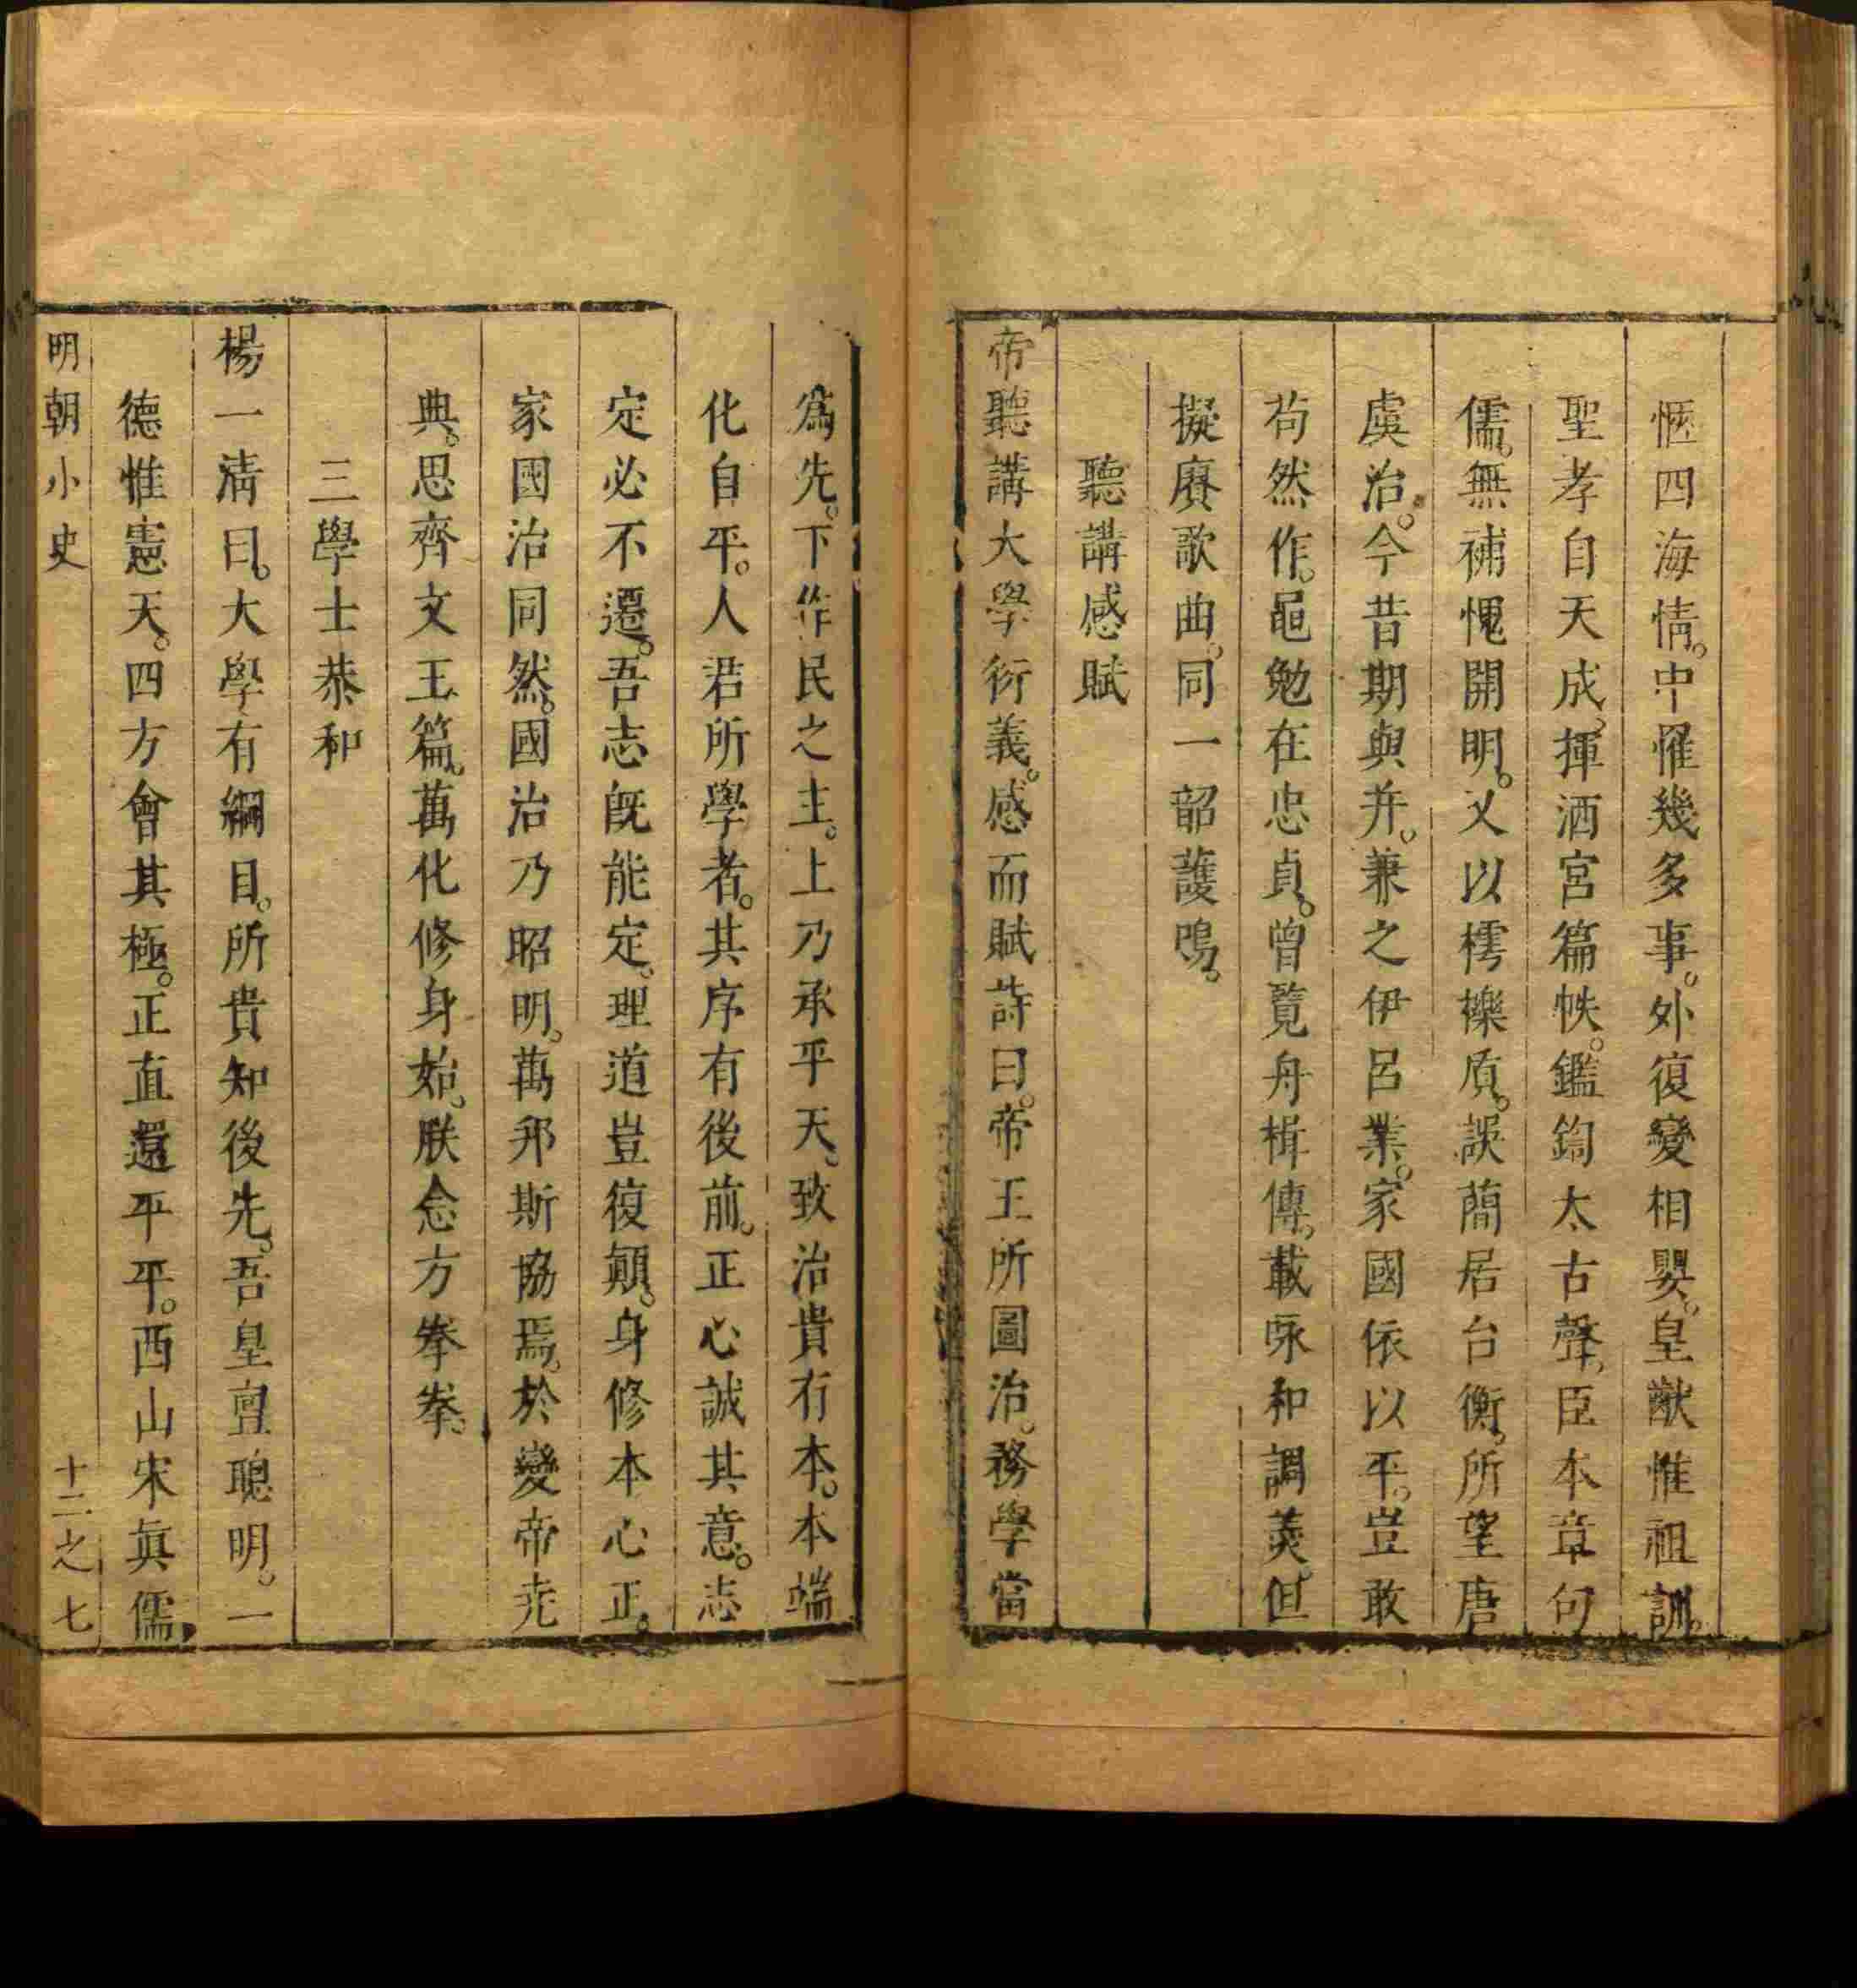 愜四海情。中罹幾多事。外復變相嬰。皇猷惟祖訓。
聖孝自天成。揮洒宮篇帙。鑑鉤太古聲。臣本章句
儒。無補愧開明。又以樗櫟質。誤蕳居台衡。所望唐
虞治。今昔期與并。兼之伊呂業。家國依以平。豈敢
苟然作。黽勉在忠貞。曾覧舟楫傳。載咏和調羮。但
擬賡歌曲。同一韶頀鳴。
聽講感賦
帝聽講大學衍義。感而賦詩曰。帝王所圖治。務學當
為先。下作民之主。上乃承平天。致治貴有本。本端
化自平。人君所學者。其序有後前。正心誠其意。志
定必不遷。吾志旣能定。理道豈復顛。身修本心正。
家國治同然。國治乃昭明。萬邦斯協焉。於變帝尭
典。思齊文王篇。萬化修身始。朕念方拳拳。
三學士恭和
楊一淸曰。大學有綱目。所貴知後先。吾皇亶聰明。一
德惟憲天。四方會其極。正直還平平。西山宋眞儒。
明朝小史
十二之七